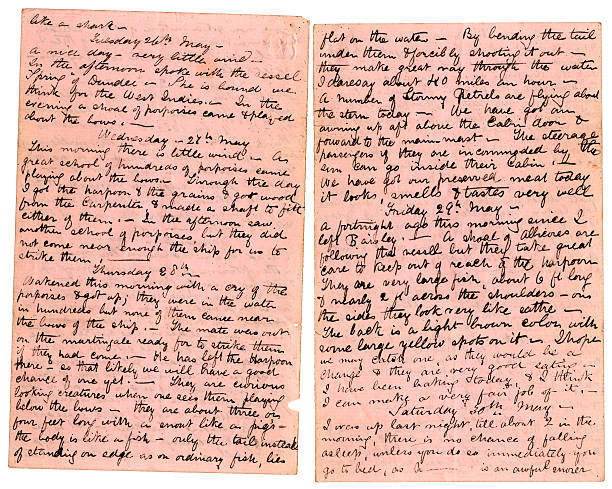 like a shark —
Tuesday 26th May —
A nice day — very little wind —
In the afternoon spoke with the vessel
Spring of Dundee — She is bound we
think for the West Indies — In the
evening a shoal of porpoises came & played
about the bows. —
Wednesday — 27th May
This morning there is little wind — A
great school of hundreds of porpoises came
playing about the bows — Through the day
I got the harpoon & the grains & got wood
from the Carpenter & made a shaft to fit
either of them. — In the afternoon saw
another school of porpoises, but they did
not come near enough the ship for us to
strike them. —
Thursday 28th
Wakened this morning with a cry of the
porpoises & got up, they were in the water
in hundreds but none of them came near
the bows of the ship. — The mate was out
on the martingale ready for to strike them
if they had come. — He has left the harpoon
there — so that likely we will have a good
chance of one yet. — They are curious
looking creatures when one sees them playing
below the bows — they are about three or
four feet long with a snout like a pigs —
the body is like a fish — only the tail instead
of standing on edge as an ordinary fish, lies
flat on the water — By bending the tail
under them & forcibly shooting it out —
they make great way through the water
I daresay about 40 miles an hour —
A number of Stormy Petrels are flying about
the stern today — We have got an
awning up aft above the Cabin door &
forward to the mainmast — The steerage
passengers if they are incommoded by the
sun can go inside their Cabin. —
We have got our preserved meat today
it looks, smells & tastes very well
Friday 29th May —
A fortnight ago this morning since I
left — A shoal of are
following the vessel but they take great
care to keep out of reach of the harpoon
They are very large fish, about 6 ft long
& nearly 2 ft across the shoulders — on
the sides they look very like
The back is a light brown color, with
some large yellow spots on it — I hope
we may catch one, as they would be a
change & they are very good eating —
I have been baking today, & I think
I can make a very fair job of it. —
Saturday 30th May —
I was up last night, till about 2 in the
morning, there is no chance of falling
asleep, unless you do so immediately you
go to bed, as — is an awful snorer